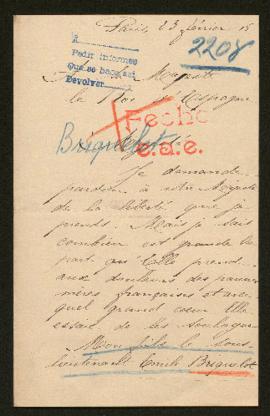 Paris, 23 février 15
2208
A
Pedir informes
Que se haga así
Devolver
Sa Majesté
le Roi d'Espagne
Fecho
e.a.e.
Briquelot
Je demande
pardon à votre Majesté
de la liberté que je
prends. Mais je sais
combien est grande la
part qu'Elle prend
aux douleurs des pauvres
mères françaises et avec
quel grand cœur Elle
essaie de les soulager
Mon fils le sous-
lieutenant Emile Briquelot